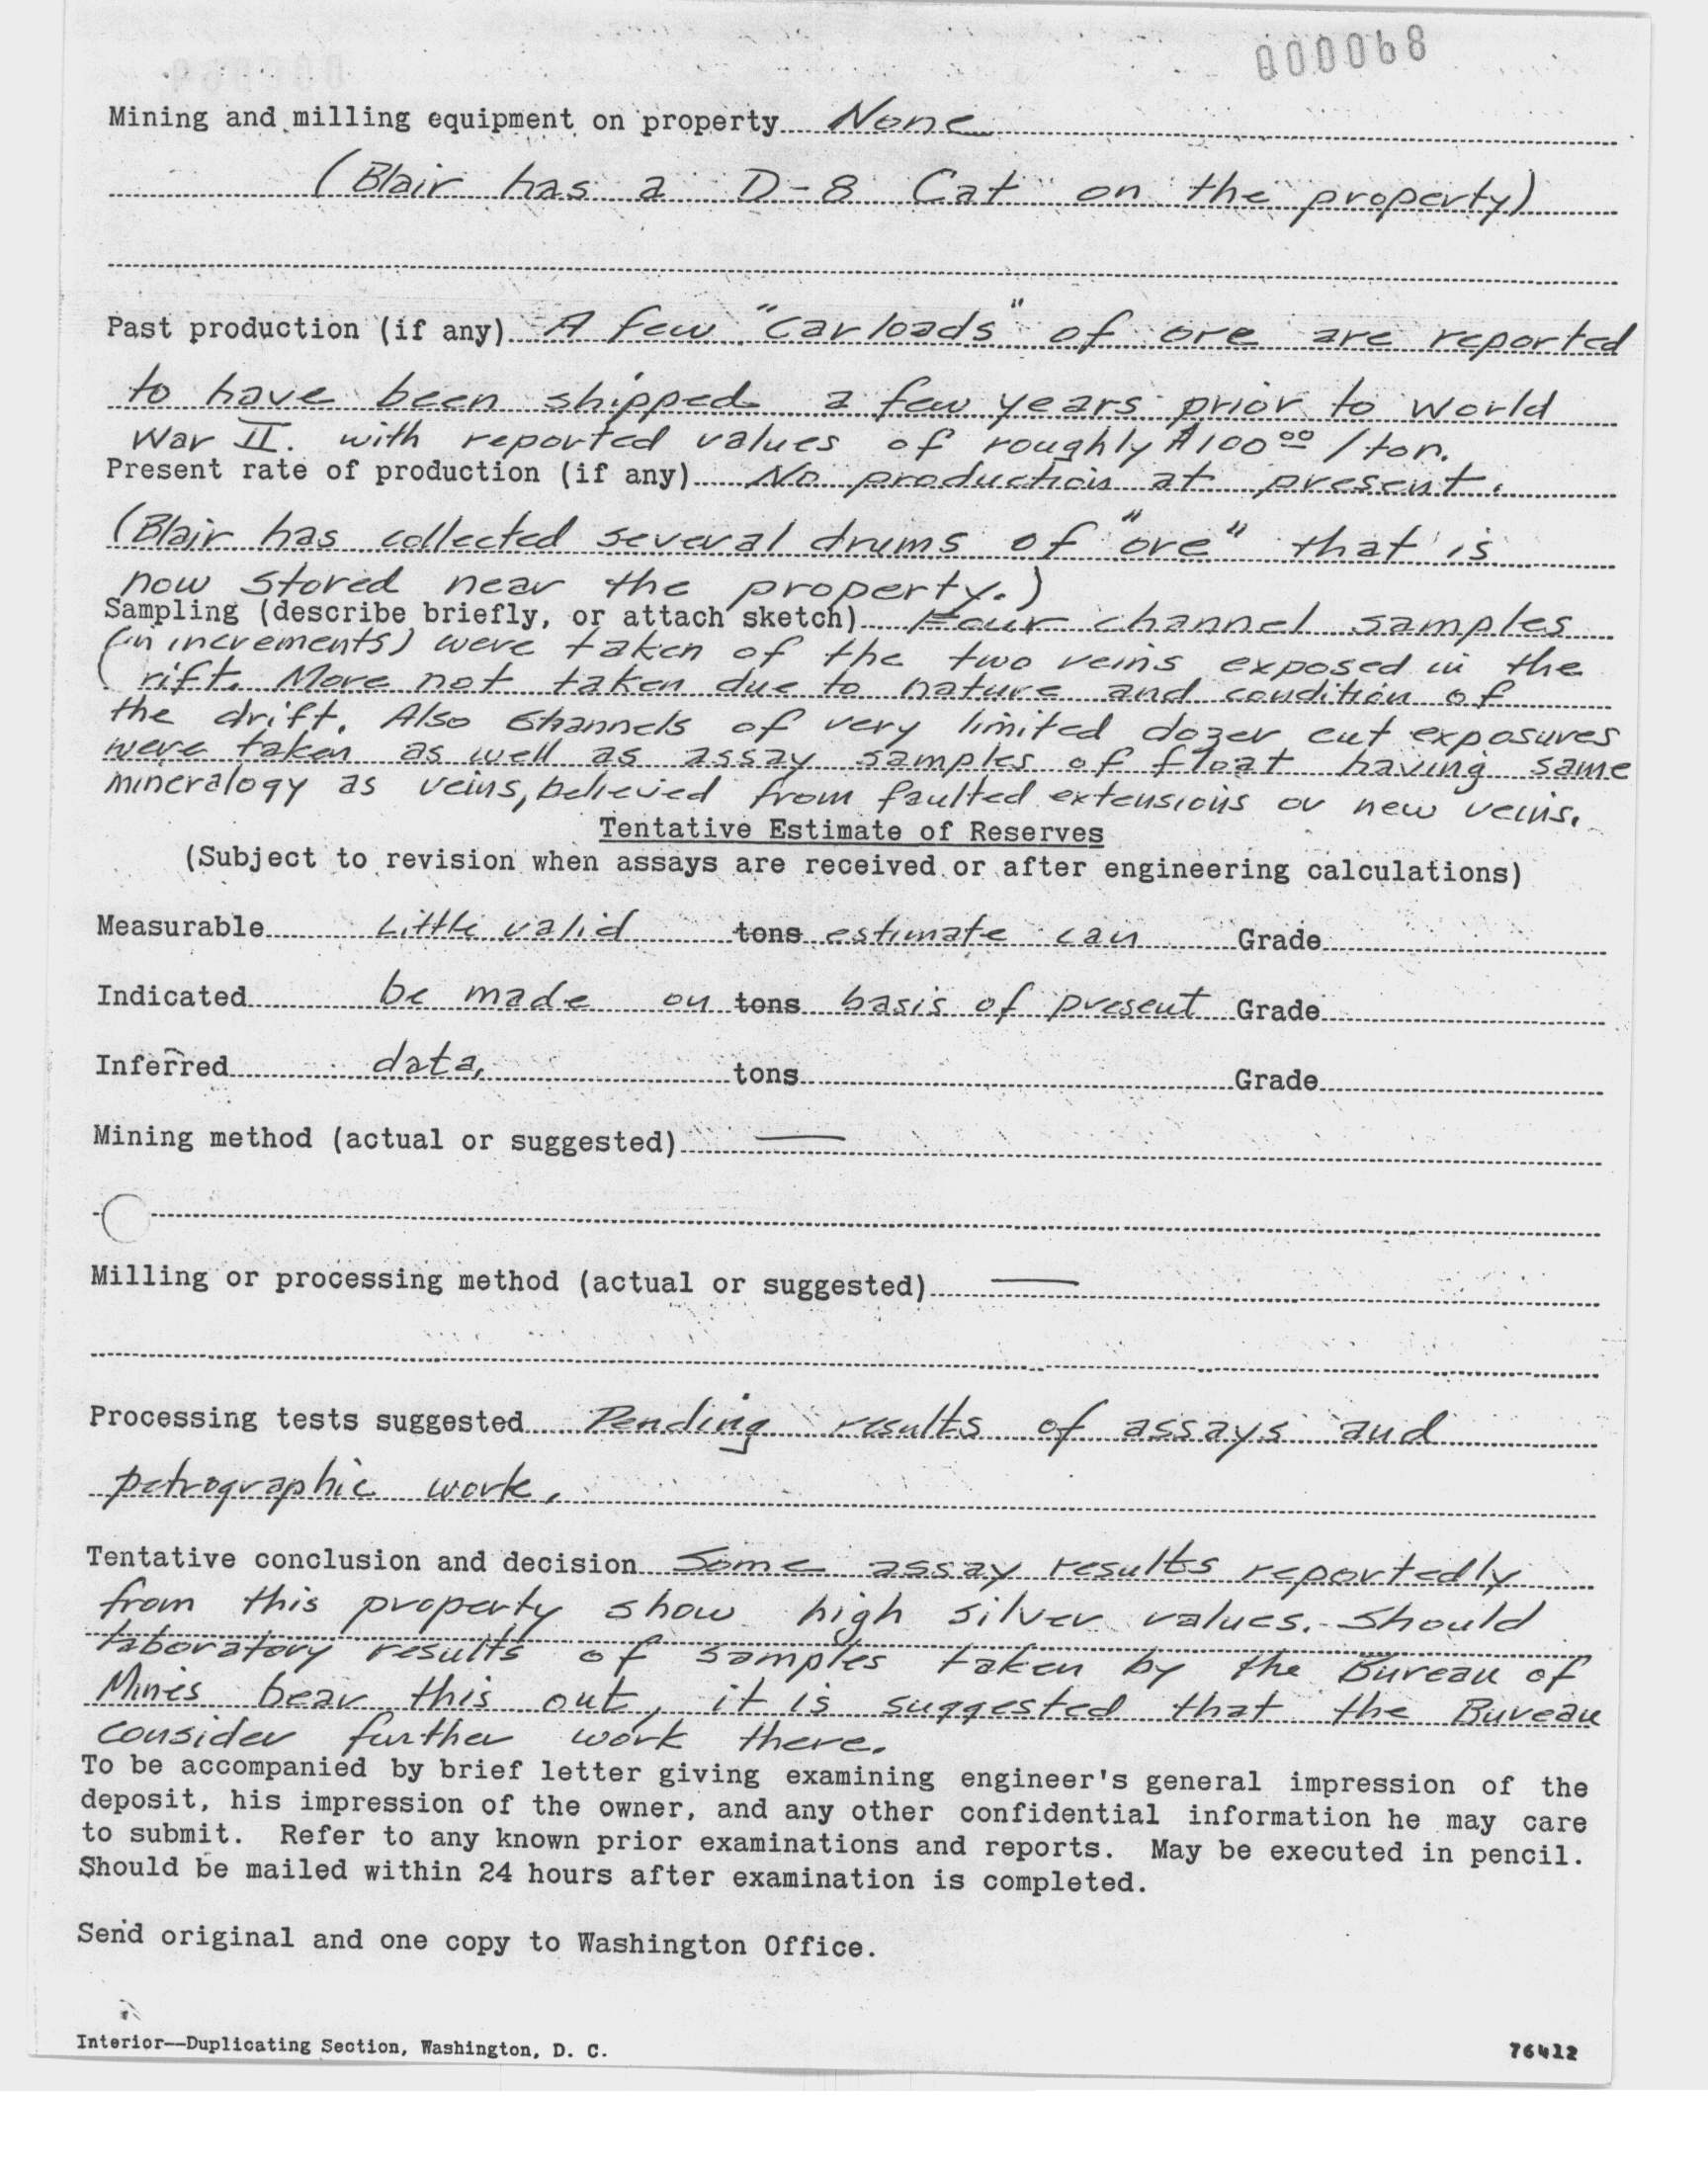 000068
Mining and milling equipment on property None
(Blair has a D-8 Cat on the property)
Past production (if any) A few "carloads" of ore are reported
to have been shipped a few years prior to World
War II. with reported values of roughly $100.00/ton.
Present rate of production (if any) No production at present.
(Blair has collected several drums of "ore" that is
now stored near the property.)
Sampling (describe briefly, or attach sketch) Four channel samples
(in increments) were taken of the two veins exposed in the
rift. More not taken due to nature and condition of
the drift. Also channels of very limited dozer cut exposures
were taken as well as assay samples of float having same
mineralogy as veins, believed from faulted extensions or new veins.
Tentative Estimate of Reserves
(Subject to revision when assays are received or after engineering calculations)
Measurable Little valid tons estimate can Grade
Indicated be made on tons basis of present Grade
Inferred data. tons Grade
Mining method (actual or suggested) —
Milling or processing method (actual or suggested) —
Processing tests suggested Pending results of assays and
petrographic work.
Tentative conclusion and decision Some assay results reportedly
from this property show high silver values. Should
laboratory results of samples taken by the Bureau of
Mines bear this out, it is suggested that the Bureau
consider further work there.
To be accompanied by brief letter giving examining engineer's general impression of the
deposit, his impression of the owner, and any other confidential information he may care
to submit. Refer to any known prior examinations and reports. May be executed in pencil.
Should be mailed within 24 hours after examination is completed.
Send original and one copy to Washington Office.
Interior—Duplicating Section, Washington, D. C.
76412